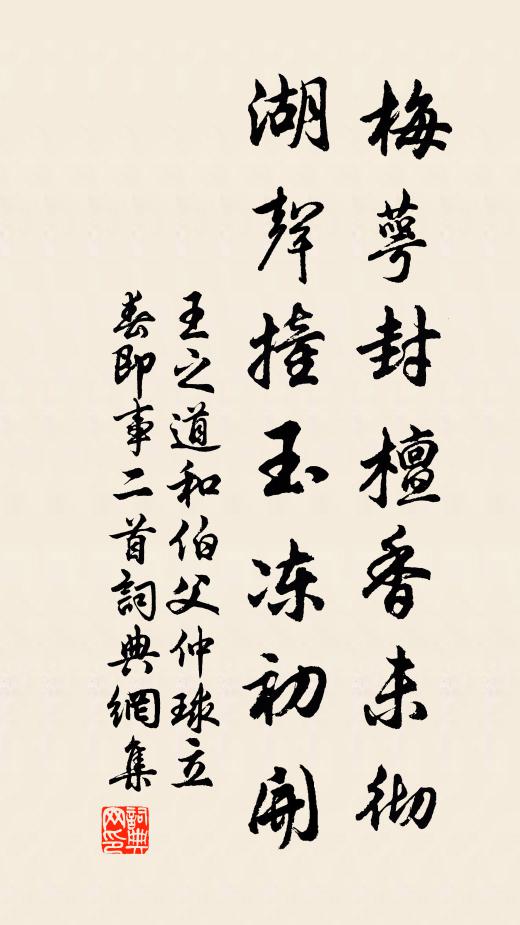 梅萼封檀香未彻
湖聲撞玉冻初開
王之道和伯父仲球立
春即事二首詞典網集
詞典網印